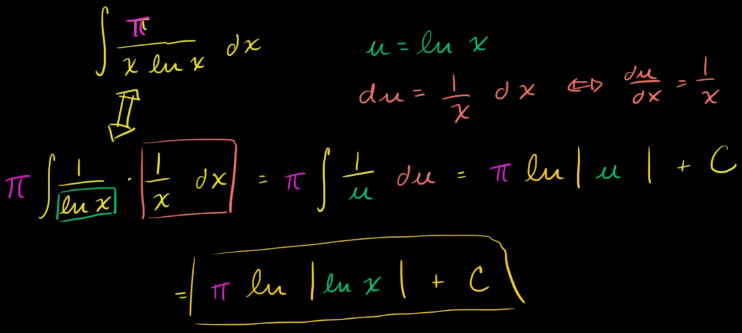 ∫ π / (x ln x) dx
u = ln x
du = 1/x dx ⇔ du/dx = 1/x
π ∫ 1/(ln x) · 1/x dx = π ∫ 1/u du = π ln |u| + C
= π ln |ln x| + C